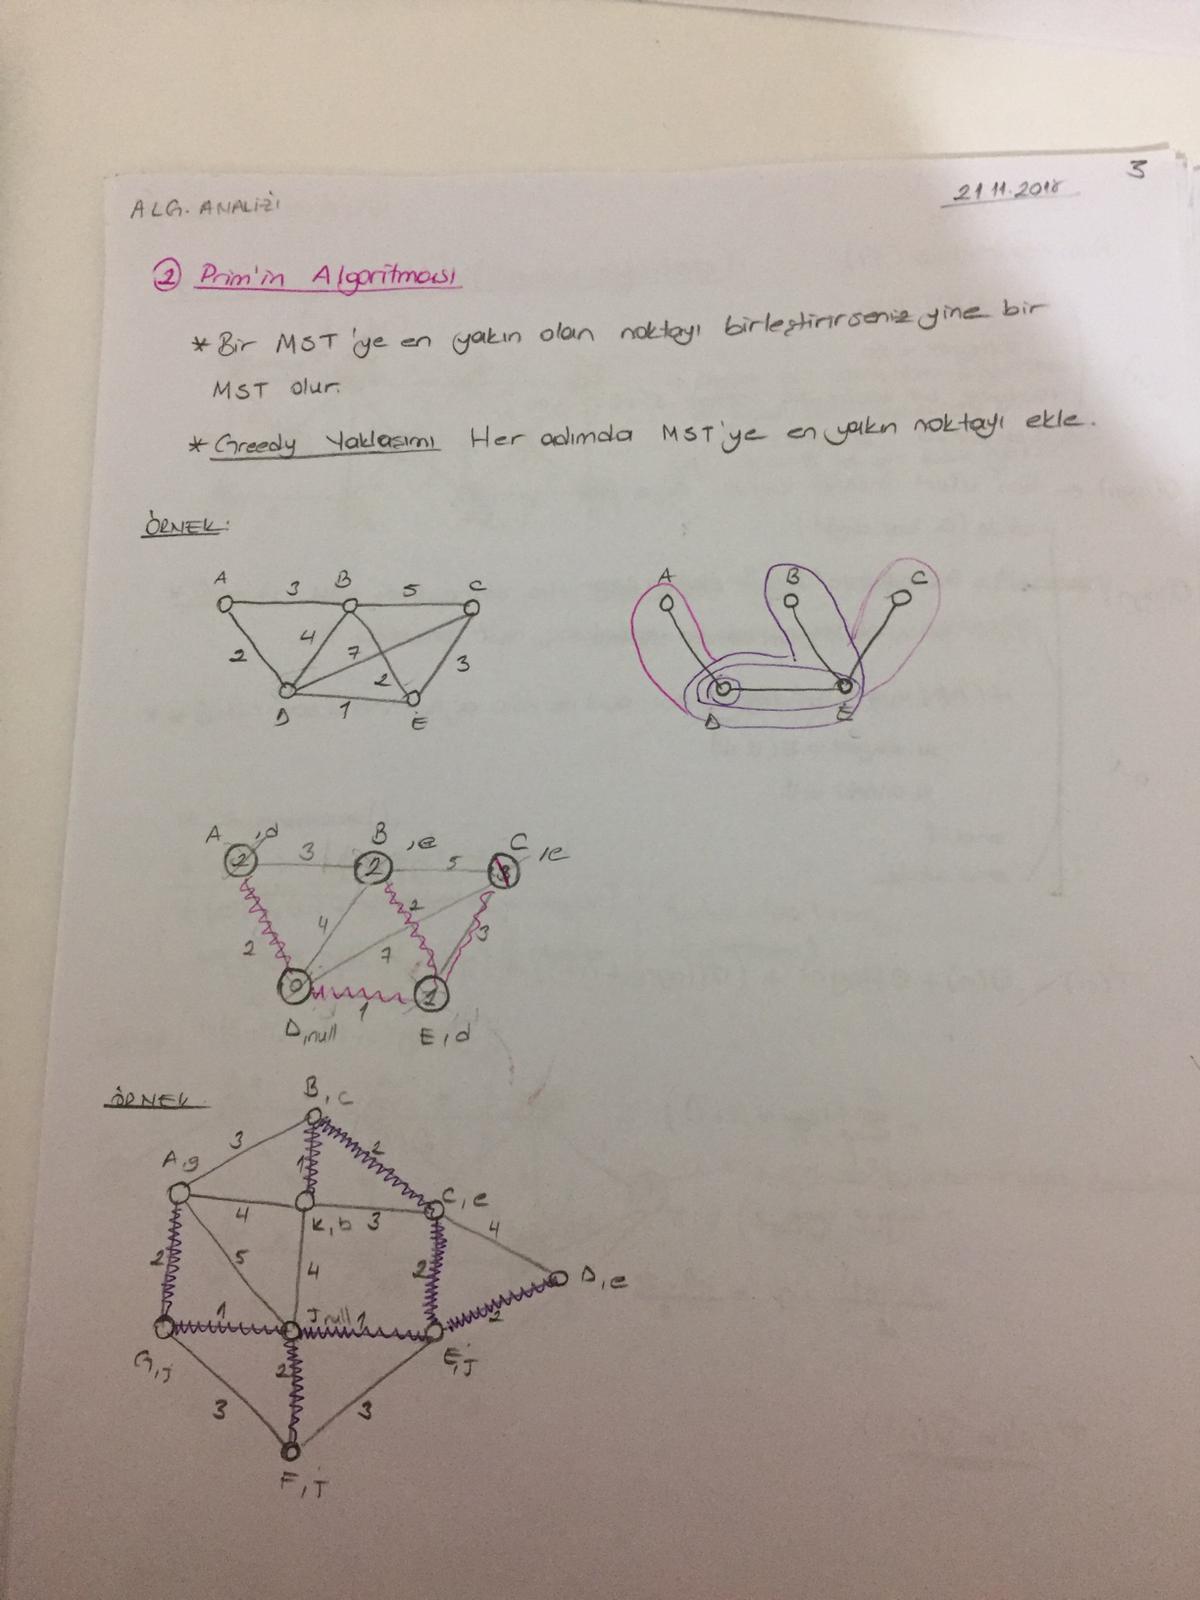 3
21.11.2018
ALG. ANALİZİ
2 Prim'in Algoritması
* Bir MST'ye en yakın olan noktayı birleştirirseniz yine bir
MST olur.
* Greedy Yaklaşımı Her adımda MST'ye en yakın noktayı ekle.
ÖRNEK:
A 3 B 5 C
4 7
2 2 3
D 1 E
A B C
D E
A ,d B ,e C ,e
2 3 2 5 3
4 2
2 7 3
0 1 1
D,null E,d
ÖRNEK
B,c
3 1 2
A,g
4 K,b 3 C,e 4
2 5 4 2 D,e
1 J,null 1 2
G,j E,J
2
3 3
F,J